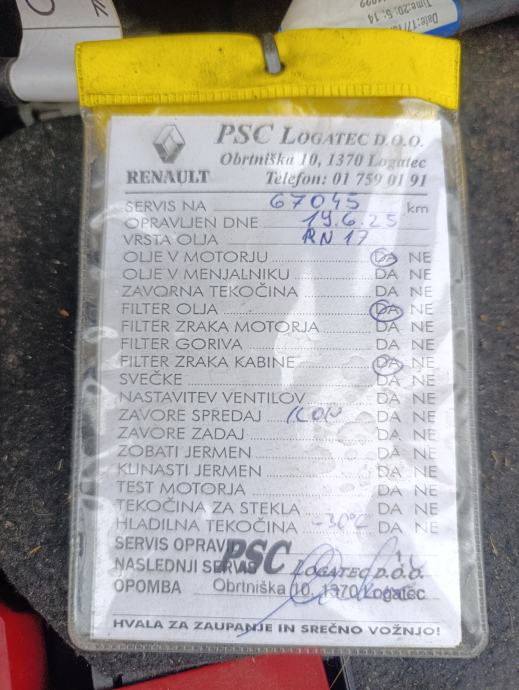 Date:17/10
Time:20:6:14
PSC LOGATEC D.O.O.
Obrtniška 10, 1370 Logatec
RENAULT Telefon: 01 759 01 91
SERVIS NA 67045 km
OPRAVLJEN DNE 19.6.25
VRSTA OLJA RN 17
OLJE V MOTORJU DA NE
OLJE V MENJALNIKU DA NE
ZAVORNA TEKOČINA DA NE
FILTER OLJA DA NE
FILTER ZRAKA MOTORJA DA NE
FILTER GORIVA DA NE
FILTER ZRAKA KABINE DA NE
SVEČKE DA NE
NASTAVITEV VENTILOV DA NE
ZAVORE SPREDAJ DA NE
ZAVORE ZADAJ DA NE
ZOBATI JERMEN DA NE
KLINASTI JERMEN DA NE
TEST MOTORJA DA NE
TEKOČINA ZA STEKLA DA NE
HLADILNA TEKOČINA -30°C DA NE
SERVIS OPRAVIL
NASLEDNJI SERVIS PSC LOGATEC D.O.O.
OPOMBA Obrtniška 10, 1370 Logatec
HVALA ZA ZAUPANJE IN SREČNO VOŽNJO!